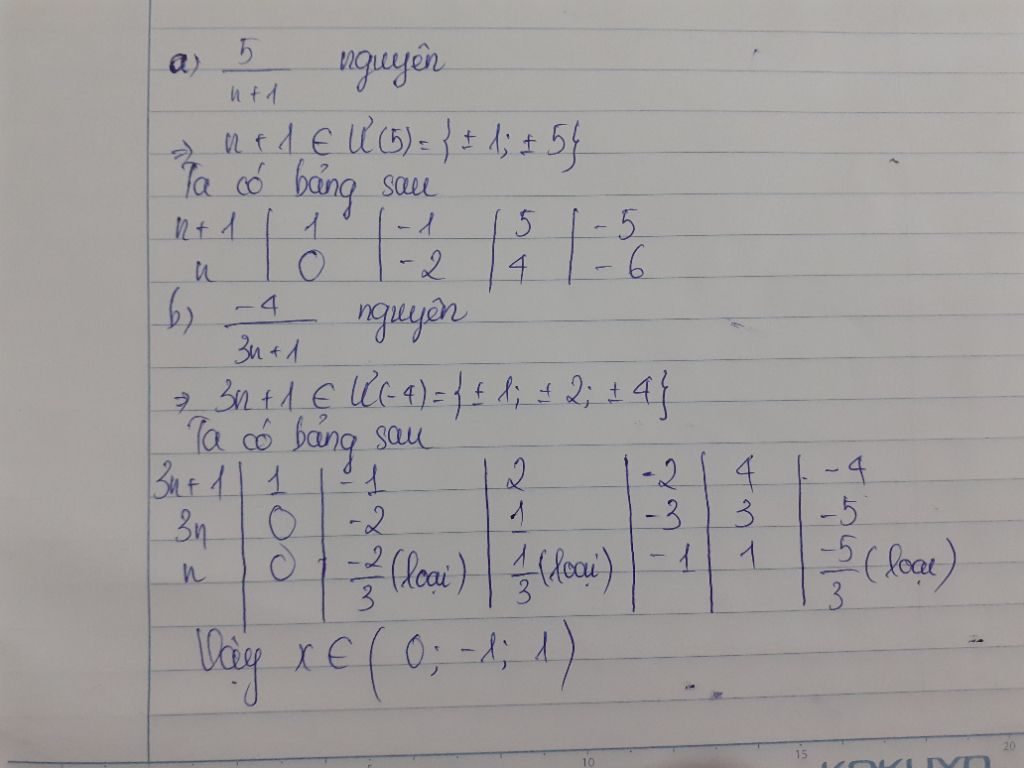 a) 5/(n+1) nguyên
⇒ n+1 ∈ Ư(5) = {±1; ±5}
Ta có bảng sau
n+1 | 1 | -1 | 5 | -5
n | 0 | -2 | 4 | -6
b) -4/(3n+1) nguyên
⇒ 3n+1 ∈ Ư(-4) = {±1; ±2; ±4}
Ta có bảng sau
3n+1 | 1 | -1 | 2 | -2 | 4 | -4
3n | 0 | -2 | 1 | -3 | 3 | -5
n | 0 | -2/3 (loại) | 1/3 (loại) | -1 | 1 | -5/3 (loại)
Vậy x ∈ (0; -1; 1)
10 15 20
KOKUYO